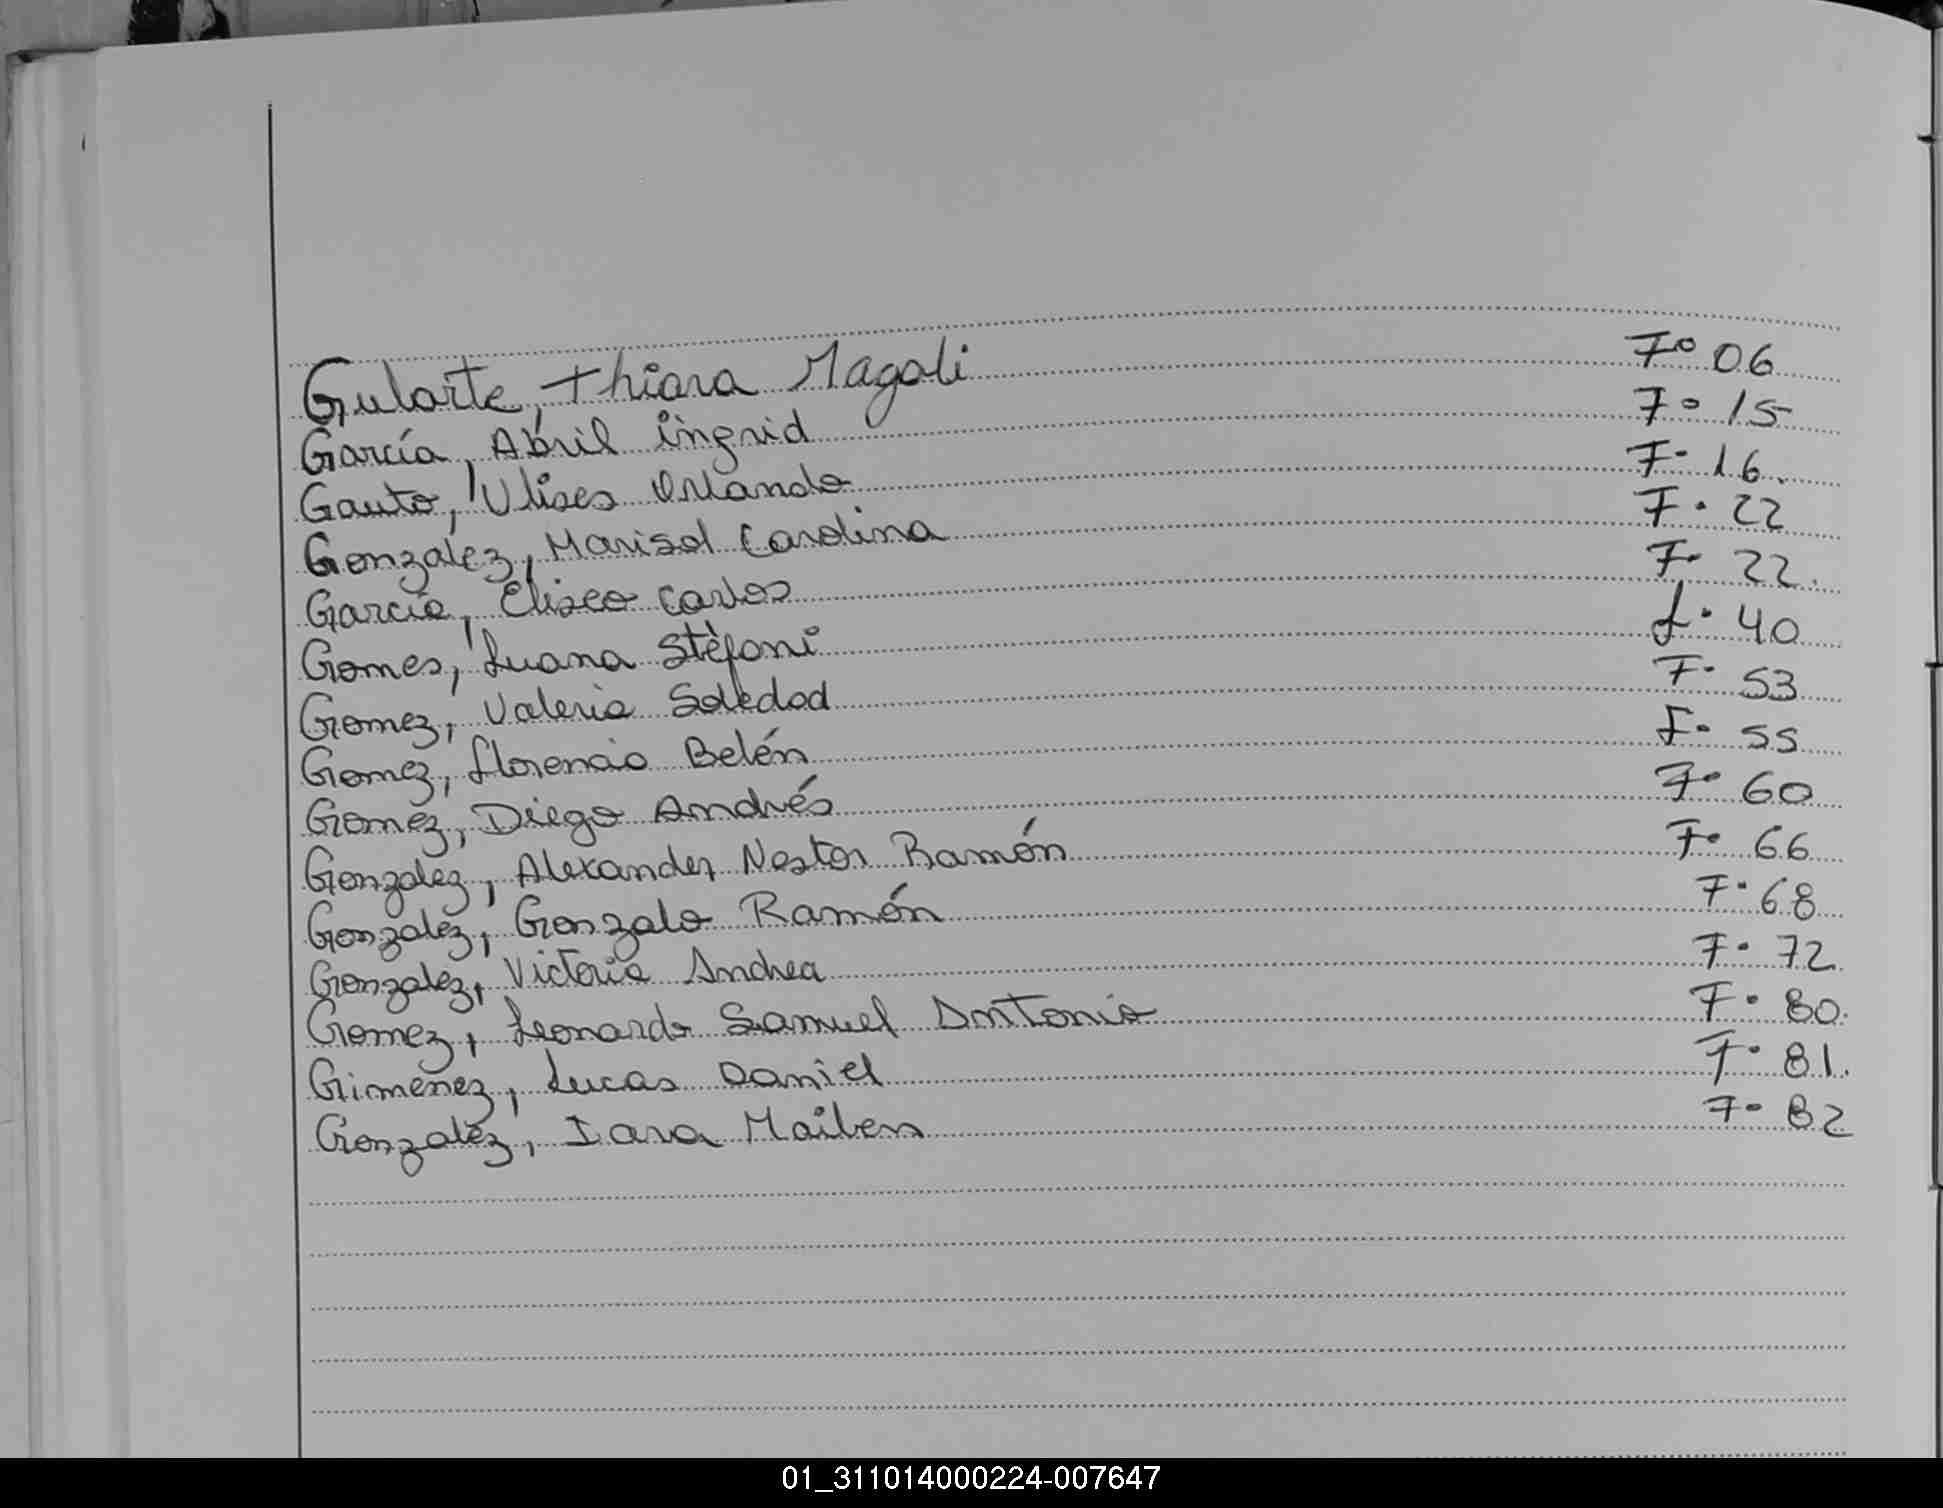 Gularte, Thiara Magali F° 06
García, Abril ingrid F° 15
Gauto, Ulises Orlando F° 16.
Gonzalez, Marisol Carolina F° 22
García, Eliseo Carlos F° 22.
Gomes, Luana Stéfani F° 40
Gomez, Valeria Soledad F° 53
Gomez, Florencia Belén F° 55
Gomez, Diego Andrés F° 60
Gonzalez, Alexander Nestor Ramón F° 66
Gonzalez, Gonzalo Ramón F° 68
Gonzalez, Victoria Andrea F° 72
Gomez, Leonardo Samuel Antonio F° 80.
Gimenez, Lucas Daniel F° 81.
Gonzalez, Iara Mailen F° 82
01_311014000224-007647